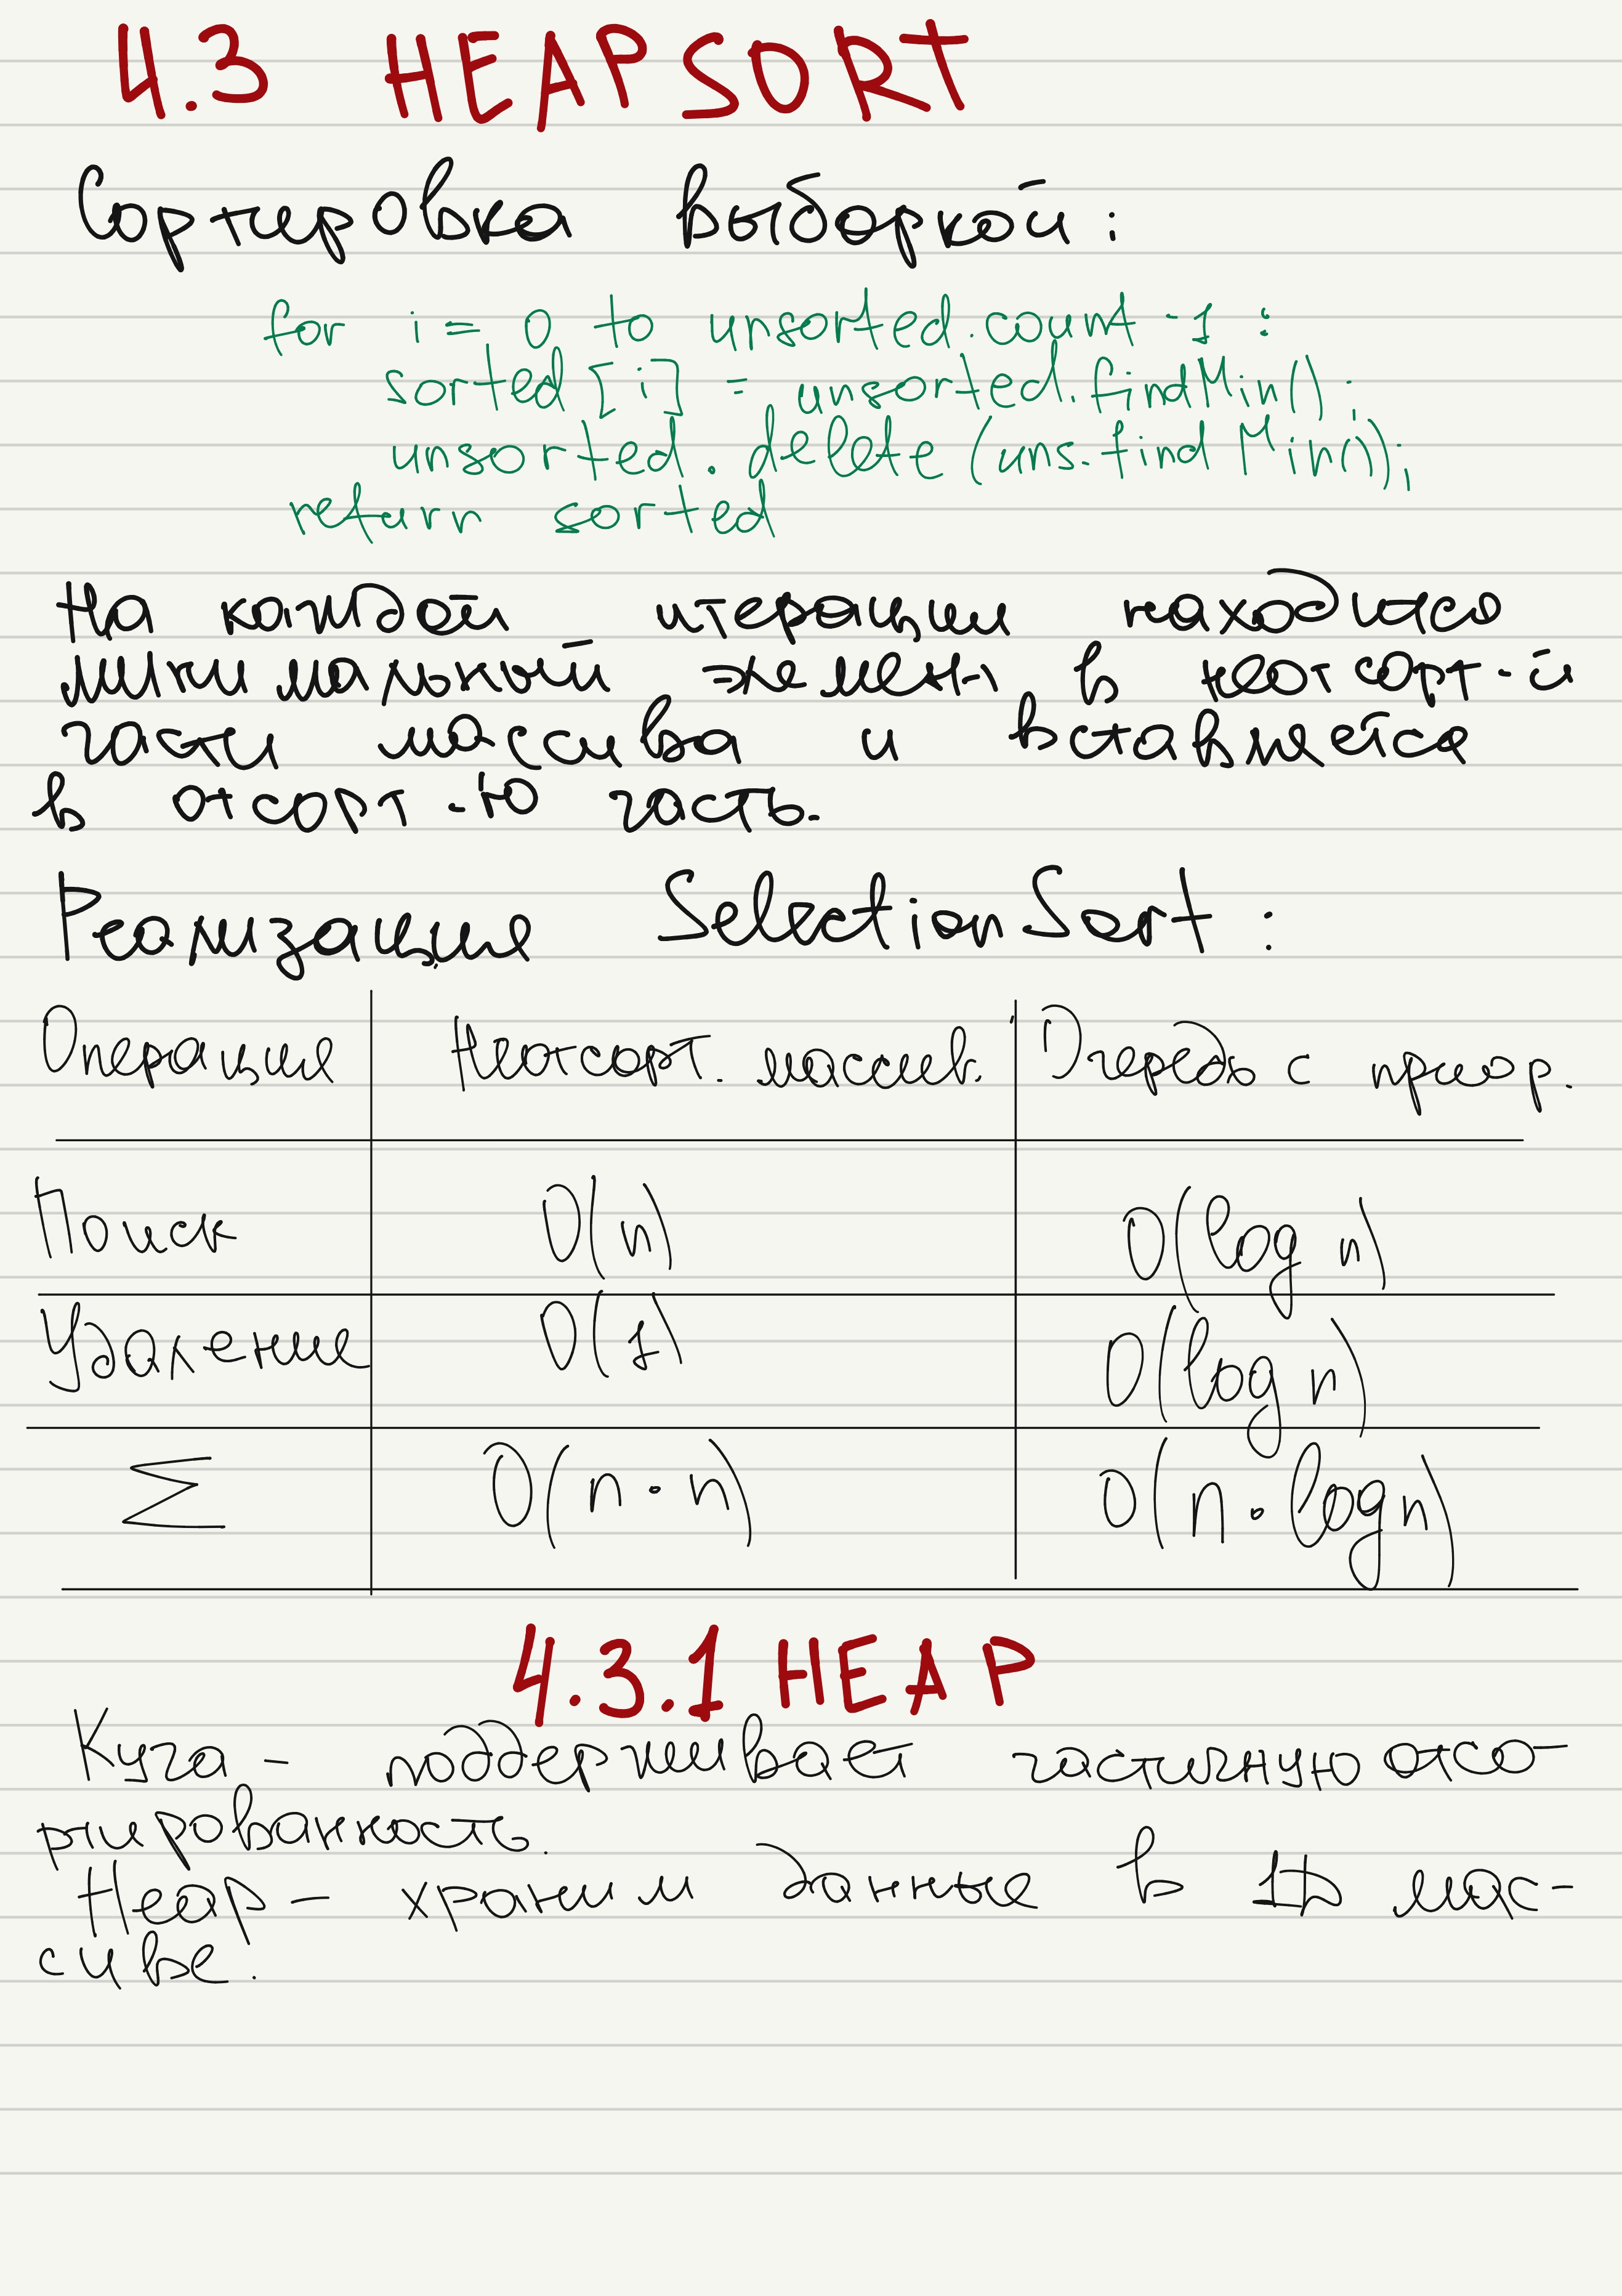 4.3 HEAPSORT
Сортировка выборкой:
for i = 0 to unsorted.count -1 :
sorted[i] = unsorted.findMin();
unsorted.delete(uns.findMin());
return sorted
На каждой итерации находится
минимальный элемент в неотсорт-й
части массива и вставляется
в отсорт-ю часть.
Реализация SelectionSort :
Операция Неотсорт. массив. Очередь с приор.
Поиск O(n) O(log n)
Удаление O(1) O(log n)
Σ O(n·n) O(n·log n)
4.3.1 HEAP
Куча - поддерживает частичную отсо-
ртированность.
Heap - храним данные в 1D мас-
сиве.